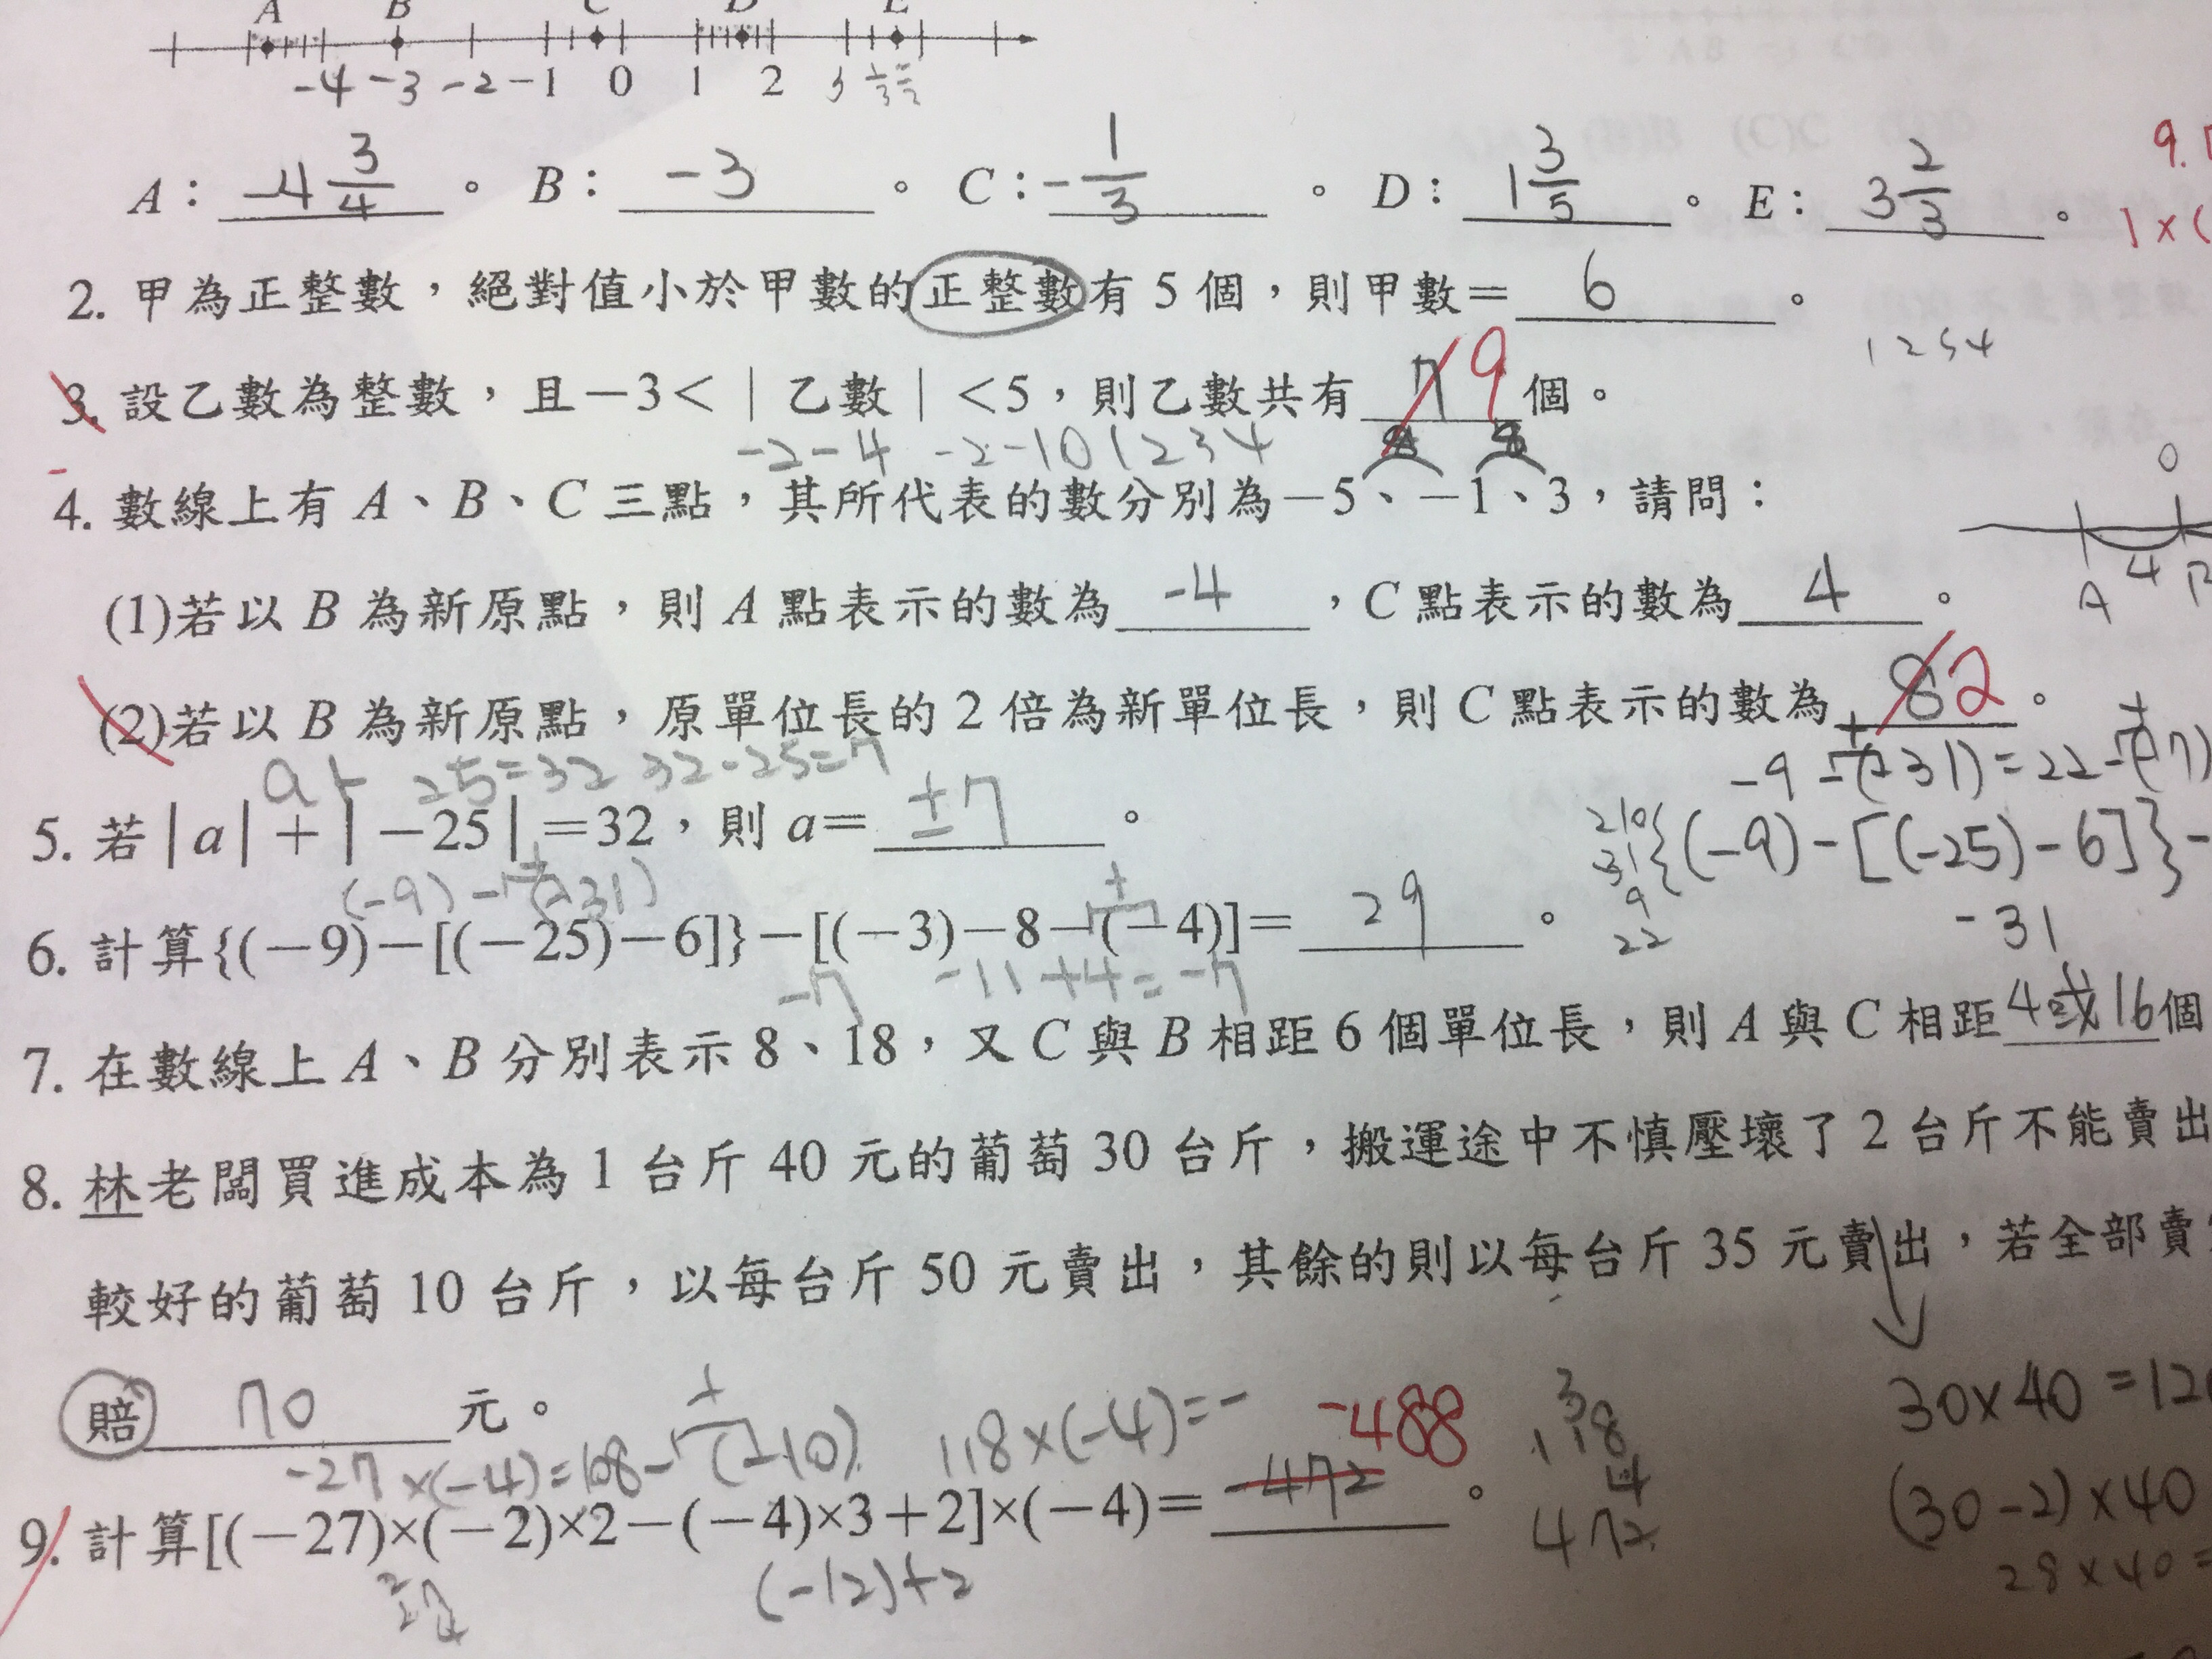 A B C D E
-4 -3 -2 -1 0 1 2 3
A：-4 3/4。B：-3。C：-1/3。D：1 3/5。E：3 2/3。
9.
1×(
2. 甲為正整數，絕對值小於甲數的正整數有 5 個，則甲數＝6。
1 2 3 4
3. 設乙數為整數，且－3＜｜乙數｜＜5，則乙數共有 7 9 個。
-2 -4 -2 -1 0 1 2 3 4
4. 數線上有 A、B、C 三點，其所代表的數分別為－5、－1、3，請問：
0
A 4 B
(1)若以 B 為新原點，則 A 點表示的數為 -4，C 點表示的數為 4。
(2)若以 B 為新原點，原單位長的 2 倍為新單位長，則 C 點表示的數為 8 2。
a+ 25=32 32-25=7
-9-(-31)=22-(-7)
5. 若｜a｜＋｜－25｜＝32，則 a＝±7。
{(-9)-[(-25)-6]}-
-31
(-9)-(-31)
+
6. 計算{(－9)－[(－25)－6]}－[(－3)－8－(－4)]＝29。
9
22
-7 -11+4=-7
7. 在數線上 A、B 分別表示 8、18，又 C 與 B 相距 6 個單位長，則 A 與 C 相距 4或16 個
8. 林老闆買進成本為 1 台斤 40 元的葡萄 30 台斤，搬運途中不慎壓壞了 2 台斤不能賣出
較好的葡萄 10 台斤，以每台斤 50 元賣出，其餘的則以每台斤 35 元賣出，若全部賣
賠 70 元。
30×40=12
-27×(-4)=108-(-10) 118×(-4)=- -488
+
3
118
4
472
(30-2)×40
28×40=
9. 計算[(－27)×(－2)×2－(－4)×3＋2]×(－4)＝-472。
(-12)+2